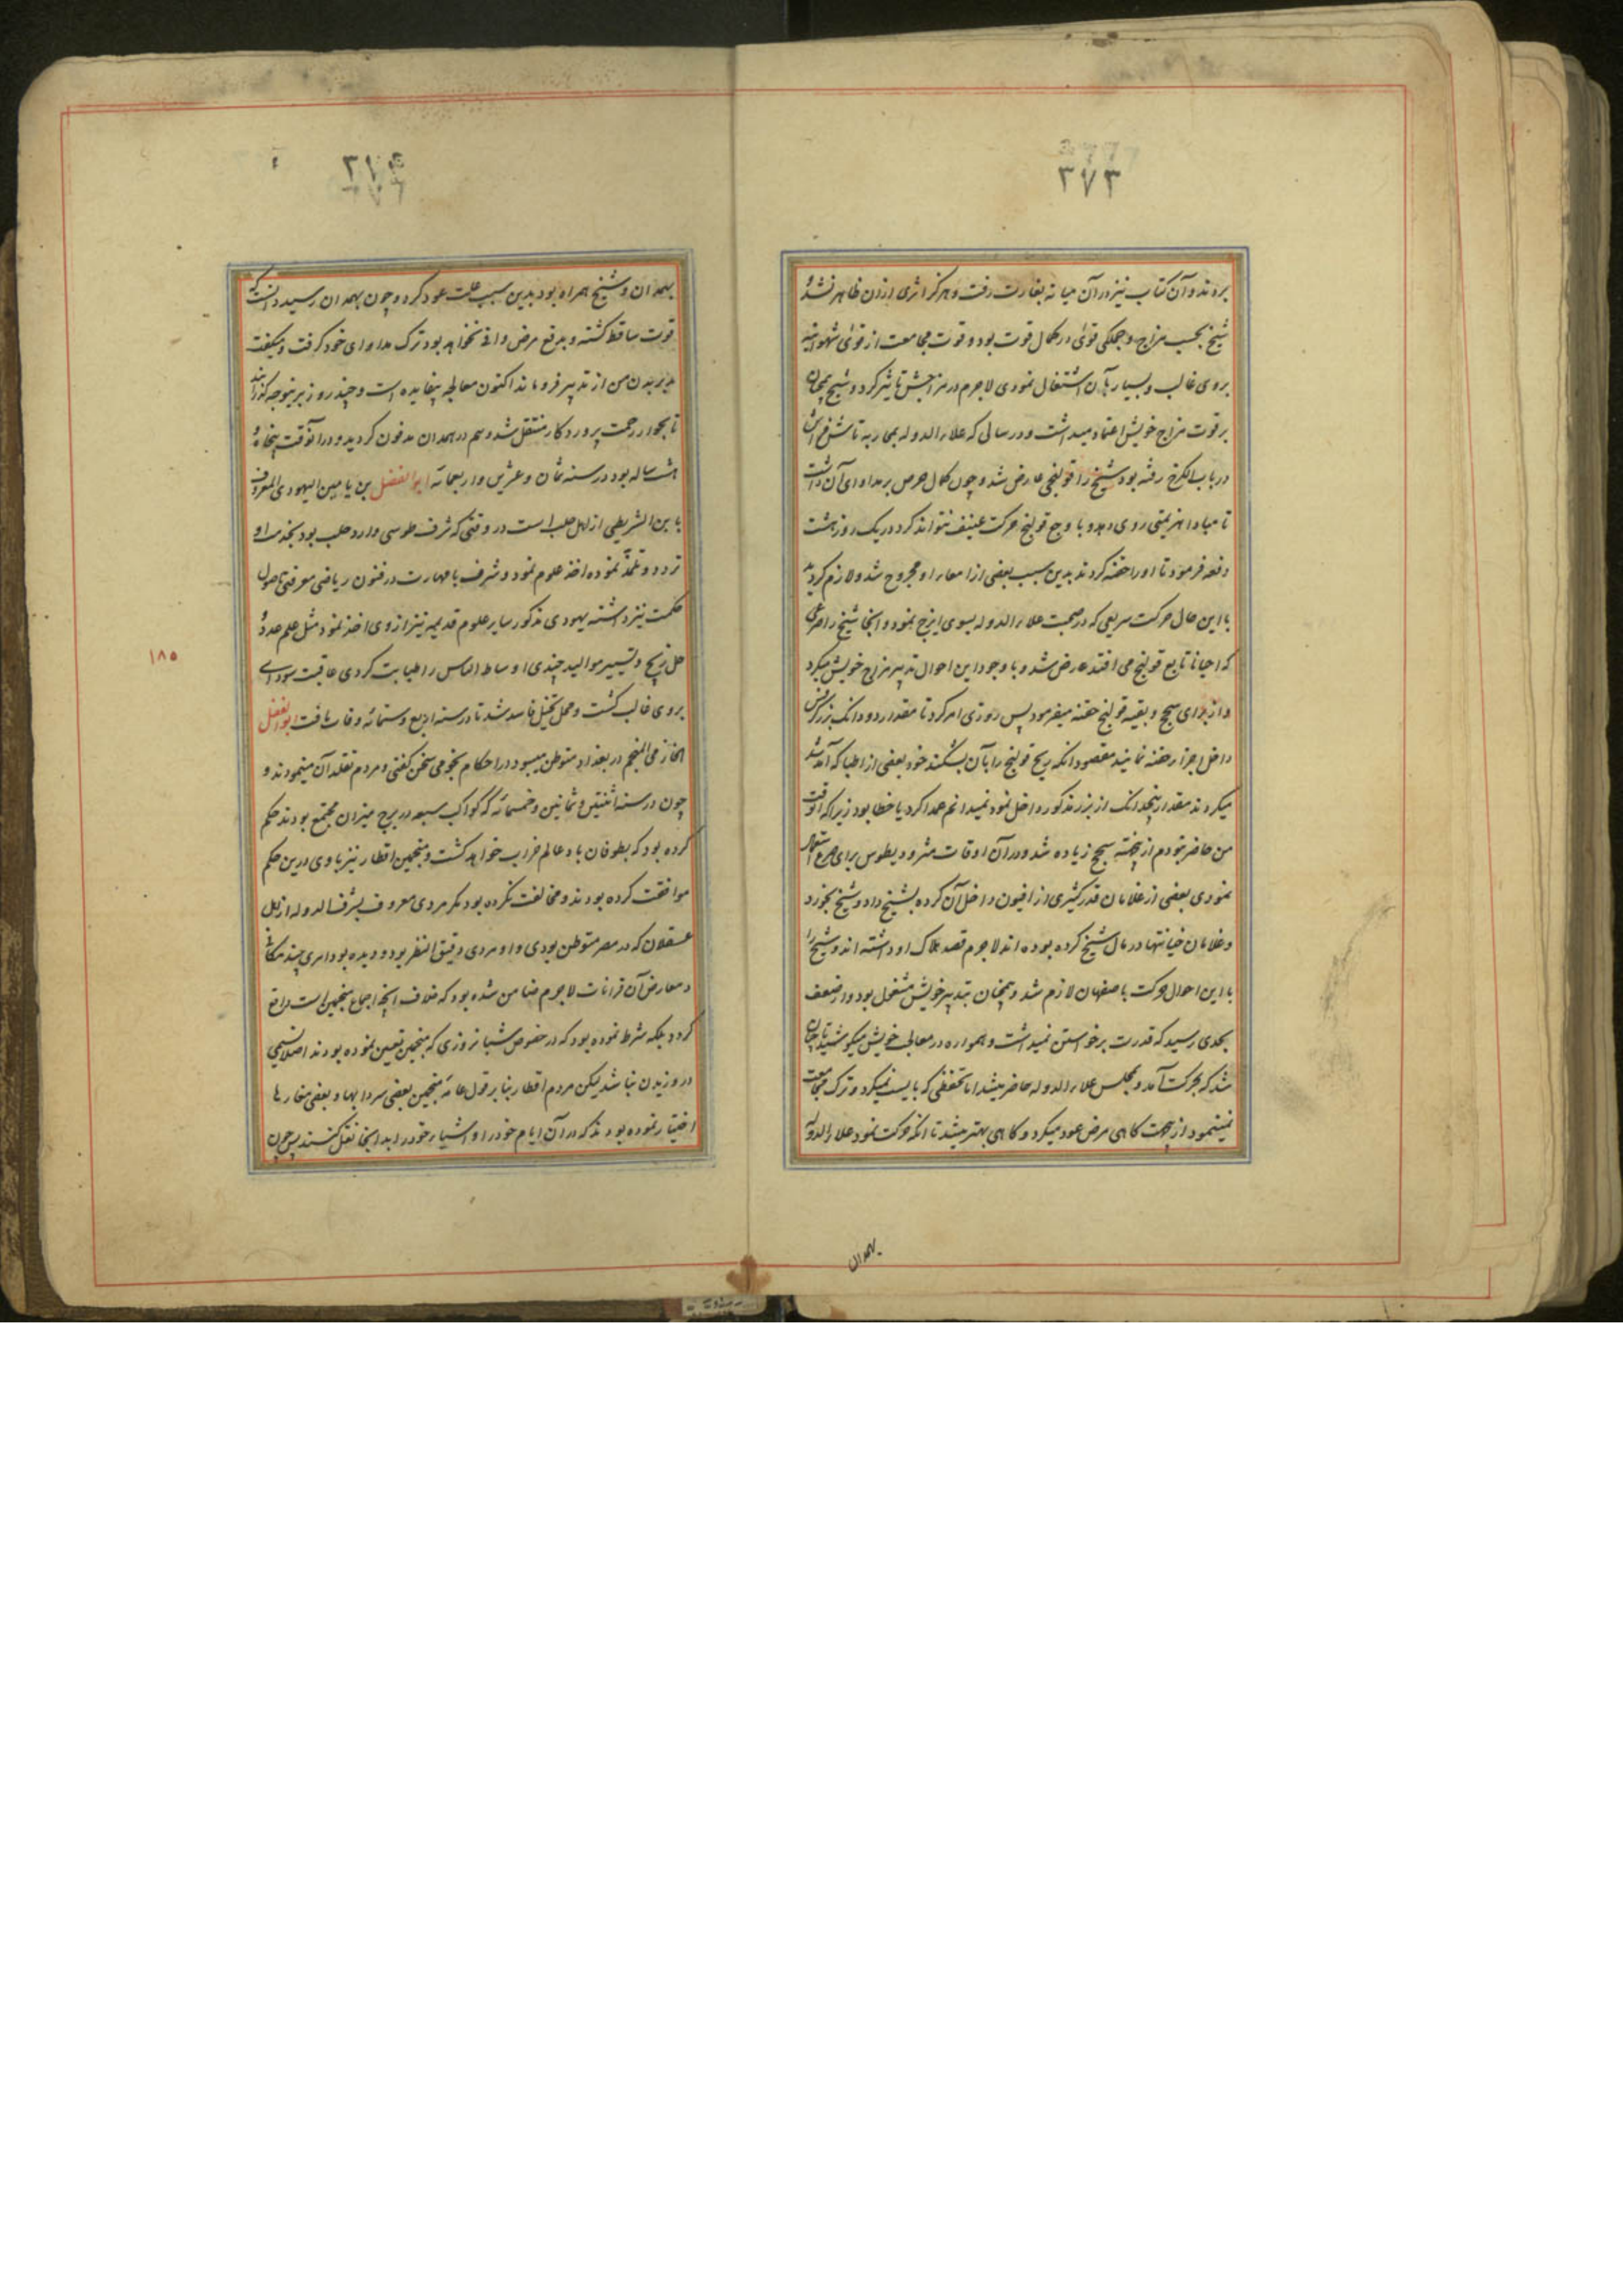 ۳۷۳
بردند و آن کتاب نیز در آن میانه بغارت رفت و هرکز اثری ازان ظاهر نشد و
شیخ بحسب مزاج و جملکی قوی در کمال قوت بود و قوت مجامعت از قوای شهوانیه
بروی غالب و بسیار بآن اشتغال نمودی لاجرم در مزاجش تاثیر کرد و شیخ همچنان
بر قوت مزاج خویش اعتماد میداشت و در سالی که علاءالدوله بمحاربه تاش فراش
در باب الکرخ رفته بود شیخ را قولنجی عارض شد و چون کمال حرص بر مداوای آن داشت
تا مبادا هزیمتی روی دهد و با وجع قولنج حرکت عنیف نتواند کرد در یک روز هشت
دفعه فرمود تا او را حقنه کردند بدین سبب بعضی از امعاء او مجروح شد و لازم کردید
با این حال حرکت سریعی که در صحبت علاءالدوله بسوی ایزج نمود و آنجا شیخ را صرعی
که احیانا تابع قولنج می افتد عارض شد و با وجود این احوال تدبیر مزاج خویش میکرد
و از برای سحج و بقیه قولنج حقنه میفرمود پس روزی امر کرد تا مقدار دو دانک بزر کرفس
داخل اجزاء حقنه نمایند مقصود آنکه ریح قولنج را بآن بشکند خود بعضی از اطبا که آمد شد
میکردند مقدار پنجدانک از بزر مذکور داخل نمود نمیدانم عمدا کرد یا خطا بود زیرا که آنوقت
من حاضر نبودم از حقنه سحج زیاده شد و در آن اوقات مثرودیطوس برای صرع استعمال
نمودی بعضی از غلامان قدر کثیری از افیون داخل آن کرده بشیخ داد و شیخ بخورد
و غلامان خیانتها در مال شیخ کرده بوده اند لاجرم قصد هلاک او داشته اند و شیخ را
با این احوال حرکت باصفهان لازم شد و همچنان بتدبیر خویش مشغول بود و از ضعف
بحدی رسید که قدرت برخواستن نمیداشت و همواره در معالجه خویش میکوشید تا چنان
شد که بحرکت آمد و بمجلس علاءالدوله حاضر میشد اما تحفظی که بایست نمیکرد و ترک مجامعت
نمینمود از بجهت کاهی مرض عود میکرد و کاهی بهتر میشد تا آنکه حرکت نمود علاءالدوله
بهمدان
بهمدان و شیخ همراه بود بدین سبب علت عود کرد و چون بهمدان رسید دانست که
قوت ساقط کشته و بدفع مرض وافی نخواهد بود ترک مداوای خود کرفت و میکفت
مدبر بدن من از تدبیر فروماند اکنون معالجه بیفایده است و چند روز برینوجه کذرانید
تا بجوار رحمت پروردکار منتقل شد و هم در همدان مدفون کردید و در آنوقت پنجاه و
هشت ساله بود در سنه ثمان و عشرین و اربعمائه ابوالفضل بن یامین الیهودی المعروف
بابن الشریطی از اهل حلب است در وقتی که شرف طوسی وارد حلب بود بخدمت او
تردد و تلمذ نموده اخذ علوم نمود و شرف با مهارت در فنون ریاضی معرفتی باصول
حکمت نیز داشته یهودی مذکور سایر علوم قدیمه نیز از وی اخذ نمود مثل علم عدد و
حل زیج و تسییر موالید چندی اوساط الناس را طبابت کردی عاقبت سودا
بروی غالب کشت و محل تخیل فاسد شد تا در سنه اربع و ستمائه وفات یافت ابوالفضل
الخازمی المنجم در بغداد متوطن میبود در احکام نجومی سخن کفتی و مردم تقلد آن مینمودند و
چون در سنه اثنتین و ثمانین و خمسمائه که کواکب سبعه در برج میزان مجتمع بودند حکم
کرده بود که بطوفان باد عالم خراب خواهد کشت و منجمین اقطار نیز با وی درین حکم
موافقت کرده بودند و مخالفت نکرده بود مکر مردی معروف بشرف الدوله از اهل
عسقلان که در مصر متوطن بودی و او مردی دقیق النظر بود و دیده بود امری چند مکافی
و معارض آن قرانات لاجرم ضامن شده بود که خلاف آنچه اجماع منجمین است واقع
کردد بلکه شرط نموده بود که در خصوص شبانروزی که منجمین تعیین نموده بودند اصلا نسیمی
در وزیدن نباشد لیکن مردم اقطار بنا بر قول عامه منجمین بعضی سردابها و بعضی مغارها
اختیار نموده بودند که در آن ایام خود را و اشیاء خود را بدانجا نقل کنند پس چون
۱۸۵